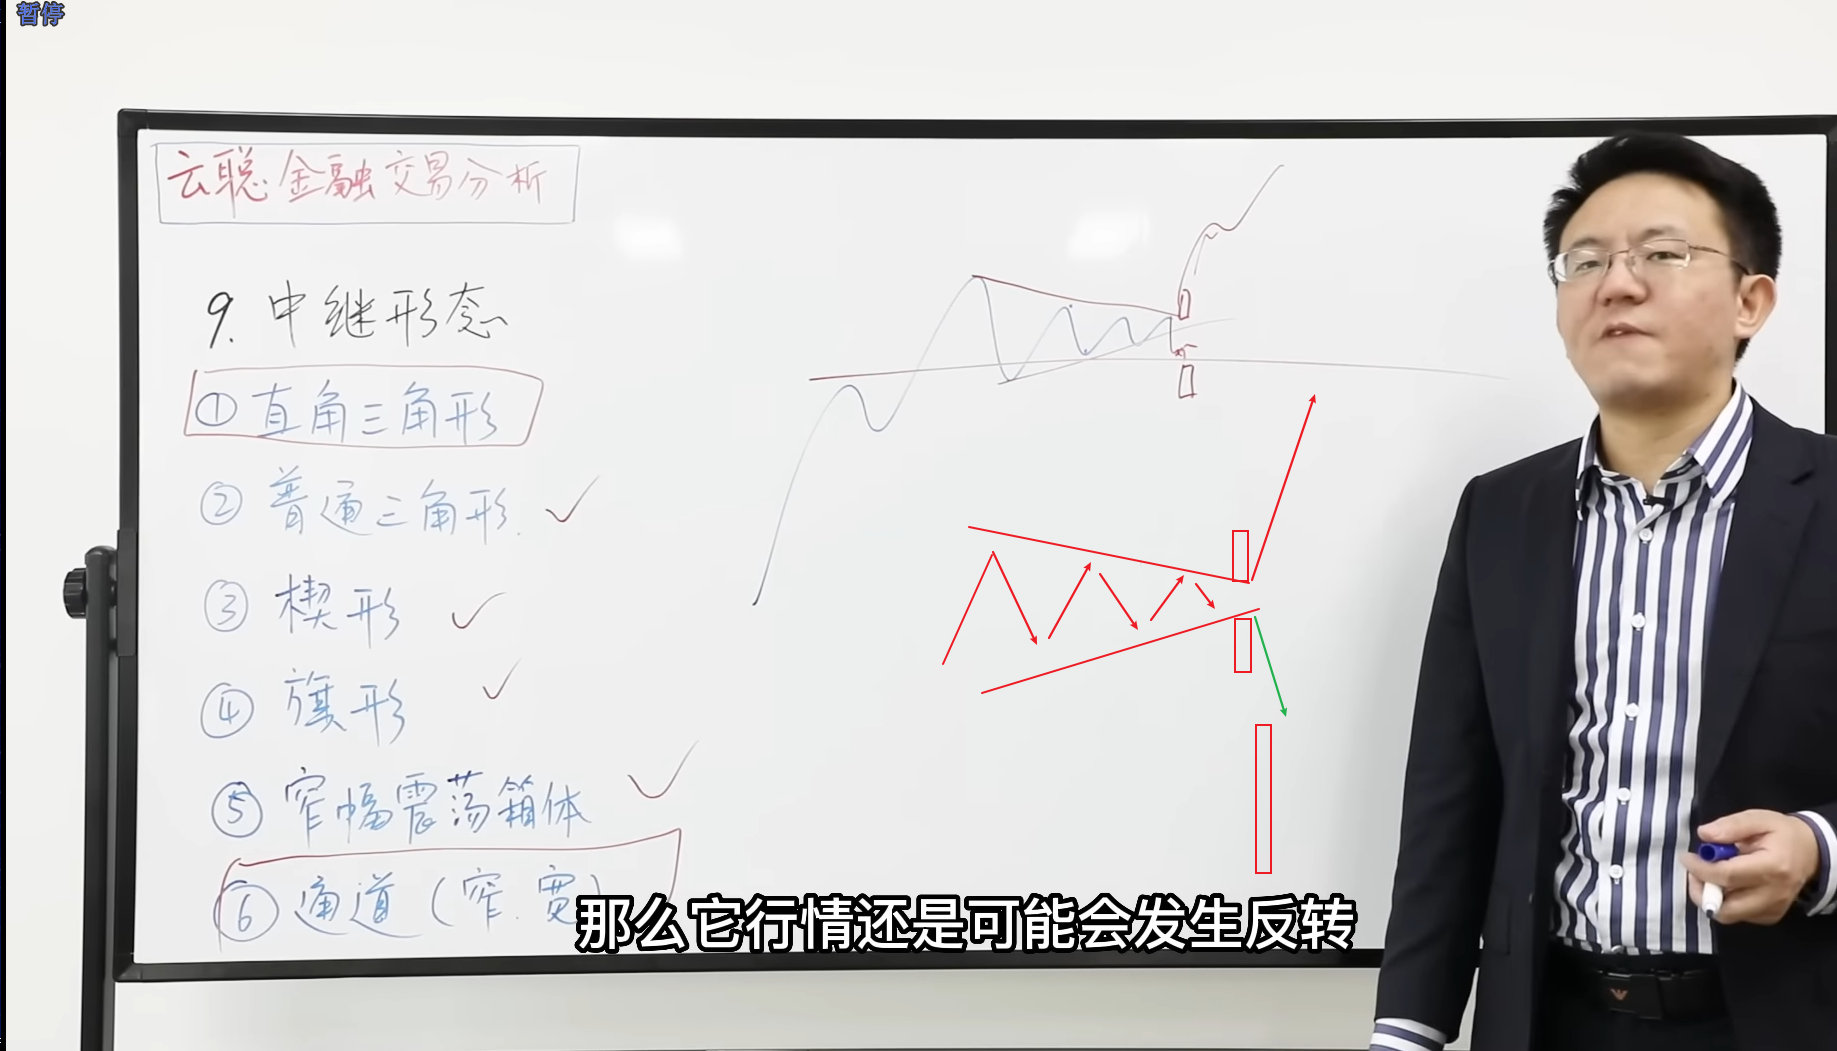 暂停
云聪金融交易分析
9. 中继形态
① 直角三角形
② 普通三角形
③ 楔形
④ 旗形
⑤ 窄幅震荡箱体
⑥ 通道（窄.宽）
那么它行情还是可能会发生反转